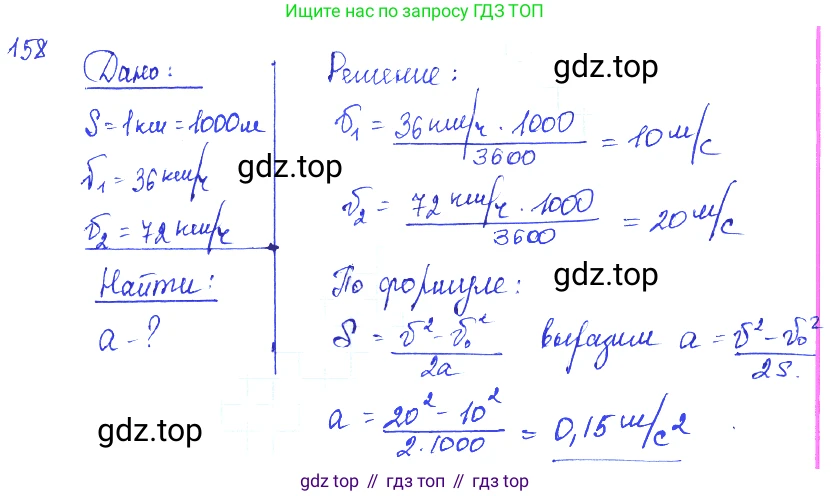 Ищите нас по запросу ГДЗ ТОП
158
Дано:
S = 1 км = 1000 м
υ₁ = 36 км/ч
υ₂ = 72 км/ч
Найти:
a - ?
Решение:
υ₁ = (36 км/ч · 1000)/3600 = 10 м/с
υ₂ = (72 км/ч · 1000)/3600 = 20 м/с
По формуле:
S = (υ² - υ₀²)/2a выразим a = (υ² - υ₀²)/2S.
a = (20² - 10²)/(2·1000) = 0,15 м/с²
gdz.top
gdz.top
gdz.top
gdz.top
gdz top // гдз топ // gdz.top // гдз.топ